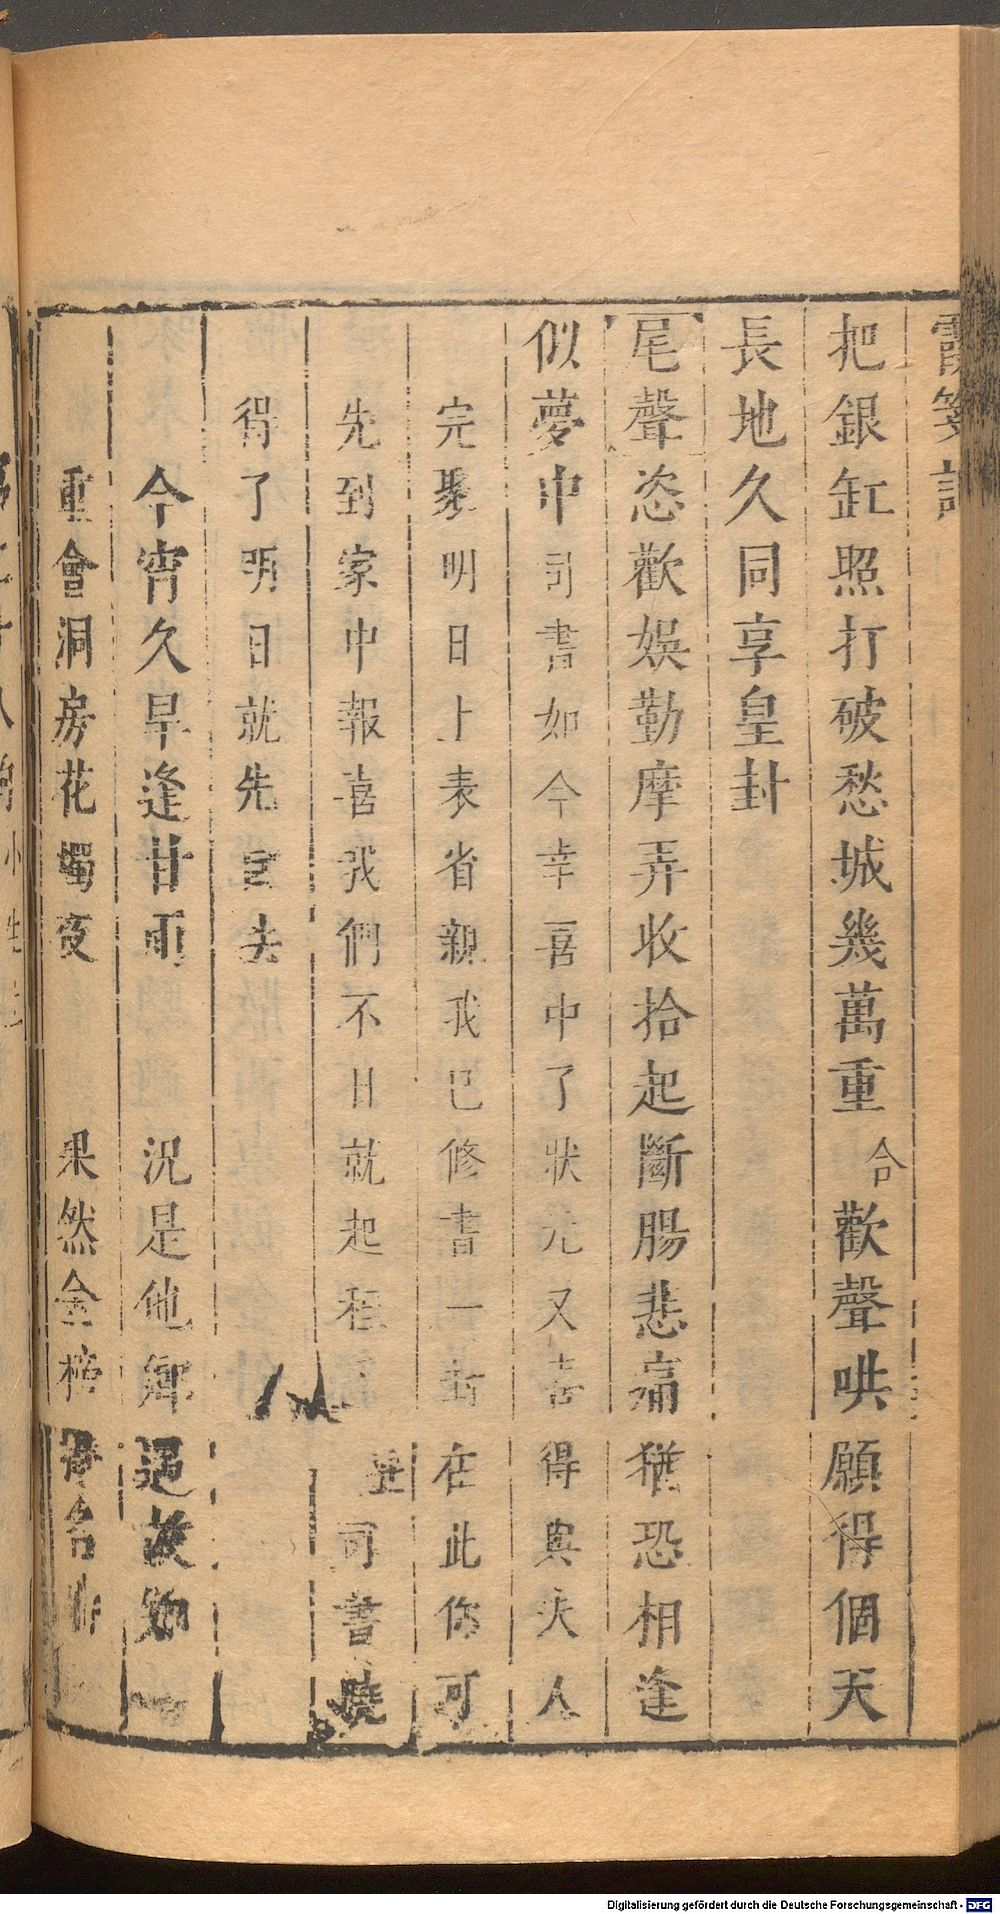 霞箋記
把銀缸照打破愁城幾萬重合歡聲哄願得個天
長地久同享皇封
尾聲恣歡娛勤摩弄收拾起斷腸悲痛猶恐相逢
似夢中司書如今幸喜中了狀元又喜得與夫人
完聚明日上表省親我已修書一封在此你可
先到家中報喜我們不日就起程 司書曉
得了明日就先去
今宵久旱逢甘雨 況是他鄉遇故知
重會洞房花燭夜 果然金榜名時
Digitalisierung gefördert durch die Deutsche Forschungsgemeinschaft - DFG